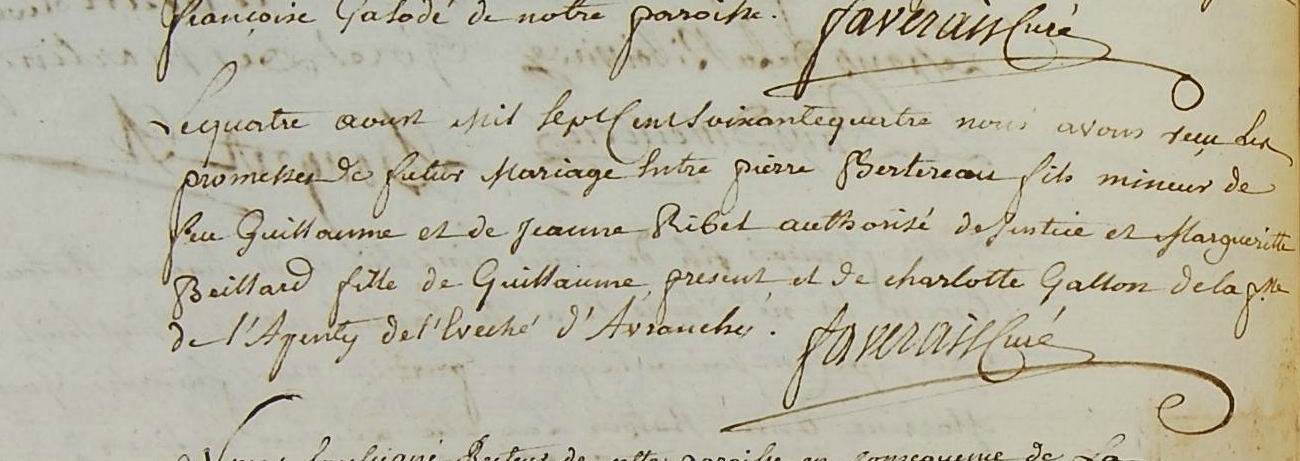 françoise Galodé de notre paroisse. faverais Curé
Lequatre aoust Mil Sept Cent Soixantequatre nous avons reçu Les
promesses de futur Mariage Entre pierre Bertereau fils mineur de
feu Guillaume et de Jeanne Ribet authorisé de Justice et Margueritte
Beillard fille de Guillaume present et de charlotte Galton de la psse
de l'Apenty de l'Eveché d'Avranches. faverais Curé
Recteur de cette paroisse en consequence de La